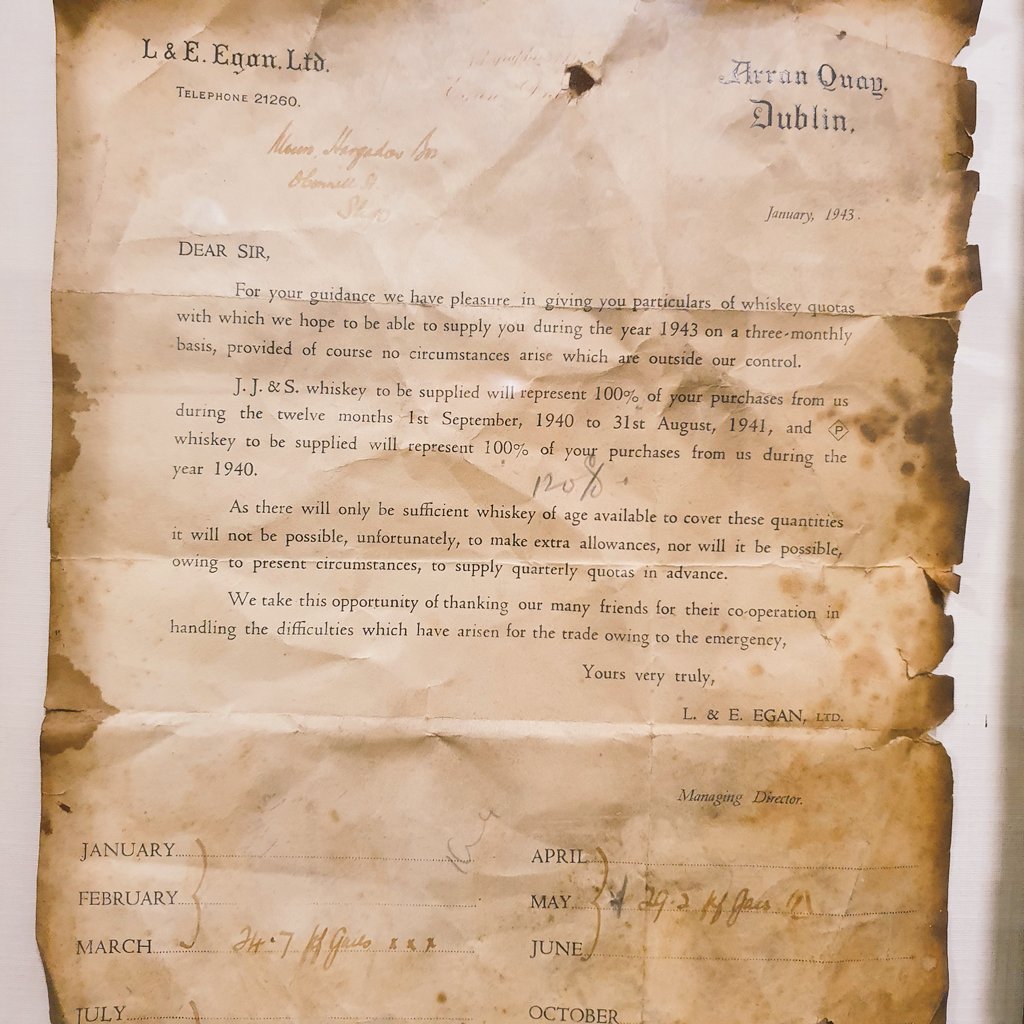 L & E. Egan. Ltd.
TELEPHONE 21260.
Arran Quay.
Dublin.
Hargadon Bros
O'Connell St
Sligo
January, 1943.
DEAR SIR,
For your guidance we have pleasure in giving you particulars of whiskey quotas
with which we hope to be able to supply you during the year 1943 on a three-monthly
basis, provided of course no circumstances arise which are outside our control.
J. J. & S. whiskey to be supplied will represent 100% of your purchases from us
during the twelve months 1st September, 1940 to 31st August, 1941, and P
whiskey to be supplied will represent 100% of your purchases from us during the
year 1940.
120%.
As there will only be sufficient whiskey of age available to cover these quantities
it will not be possible, unfortunately, to make extra allowances, nor will it be possible,
owing to present circumstances, to supply quarterly quotas in advance.
We take this opportunity of thanking our many friends for their co-operation in
handling the difficulties which have arisen for the trade owing to the emergency,
Yours very truly,
L. & E. EGAN, LTD.
Managing Director.
JANUARY
FEBRUARY
MARCH 34.7 pf Galls x x x
APRIL
MAY 29.2 pf Galls
JUNE
JULY
OCTOBER